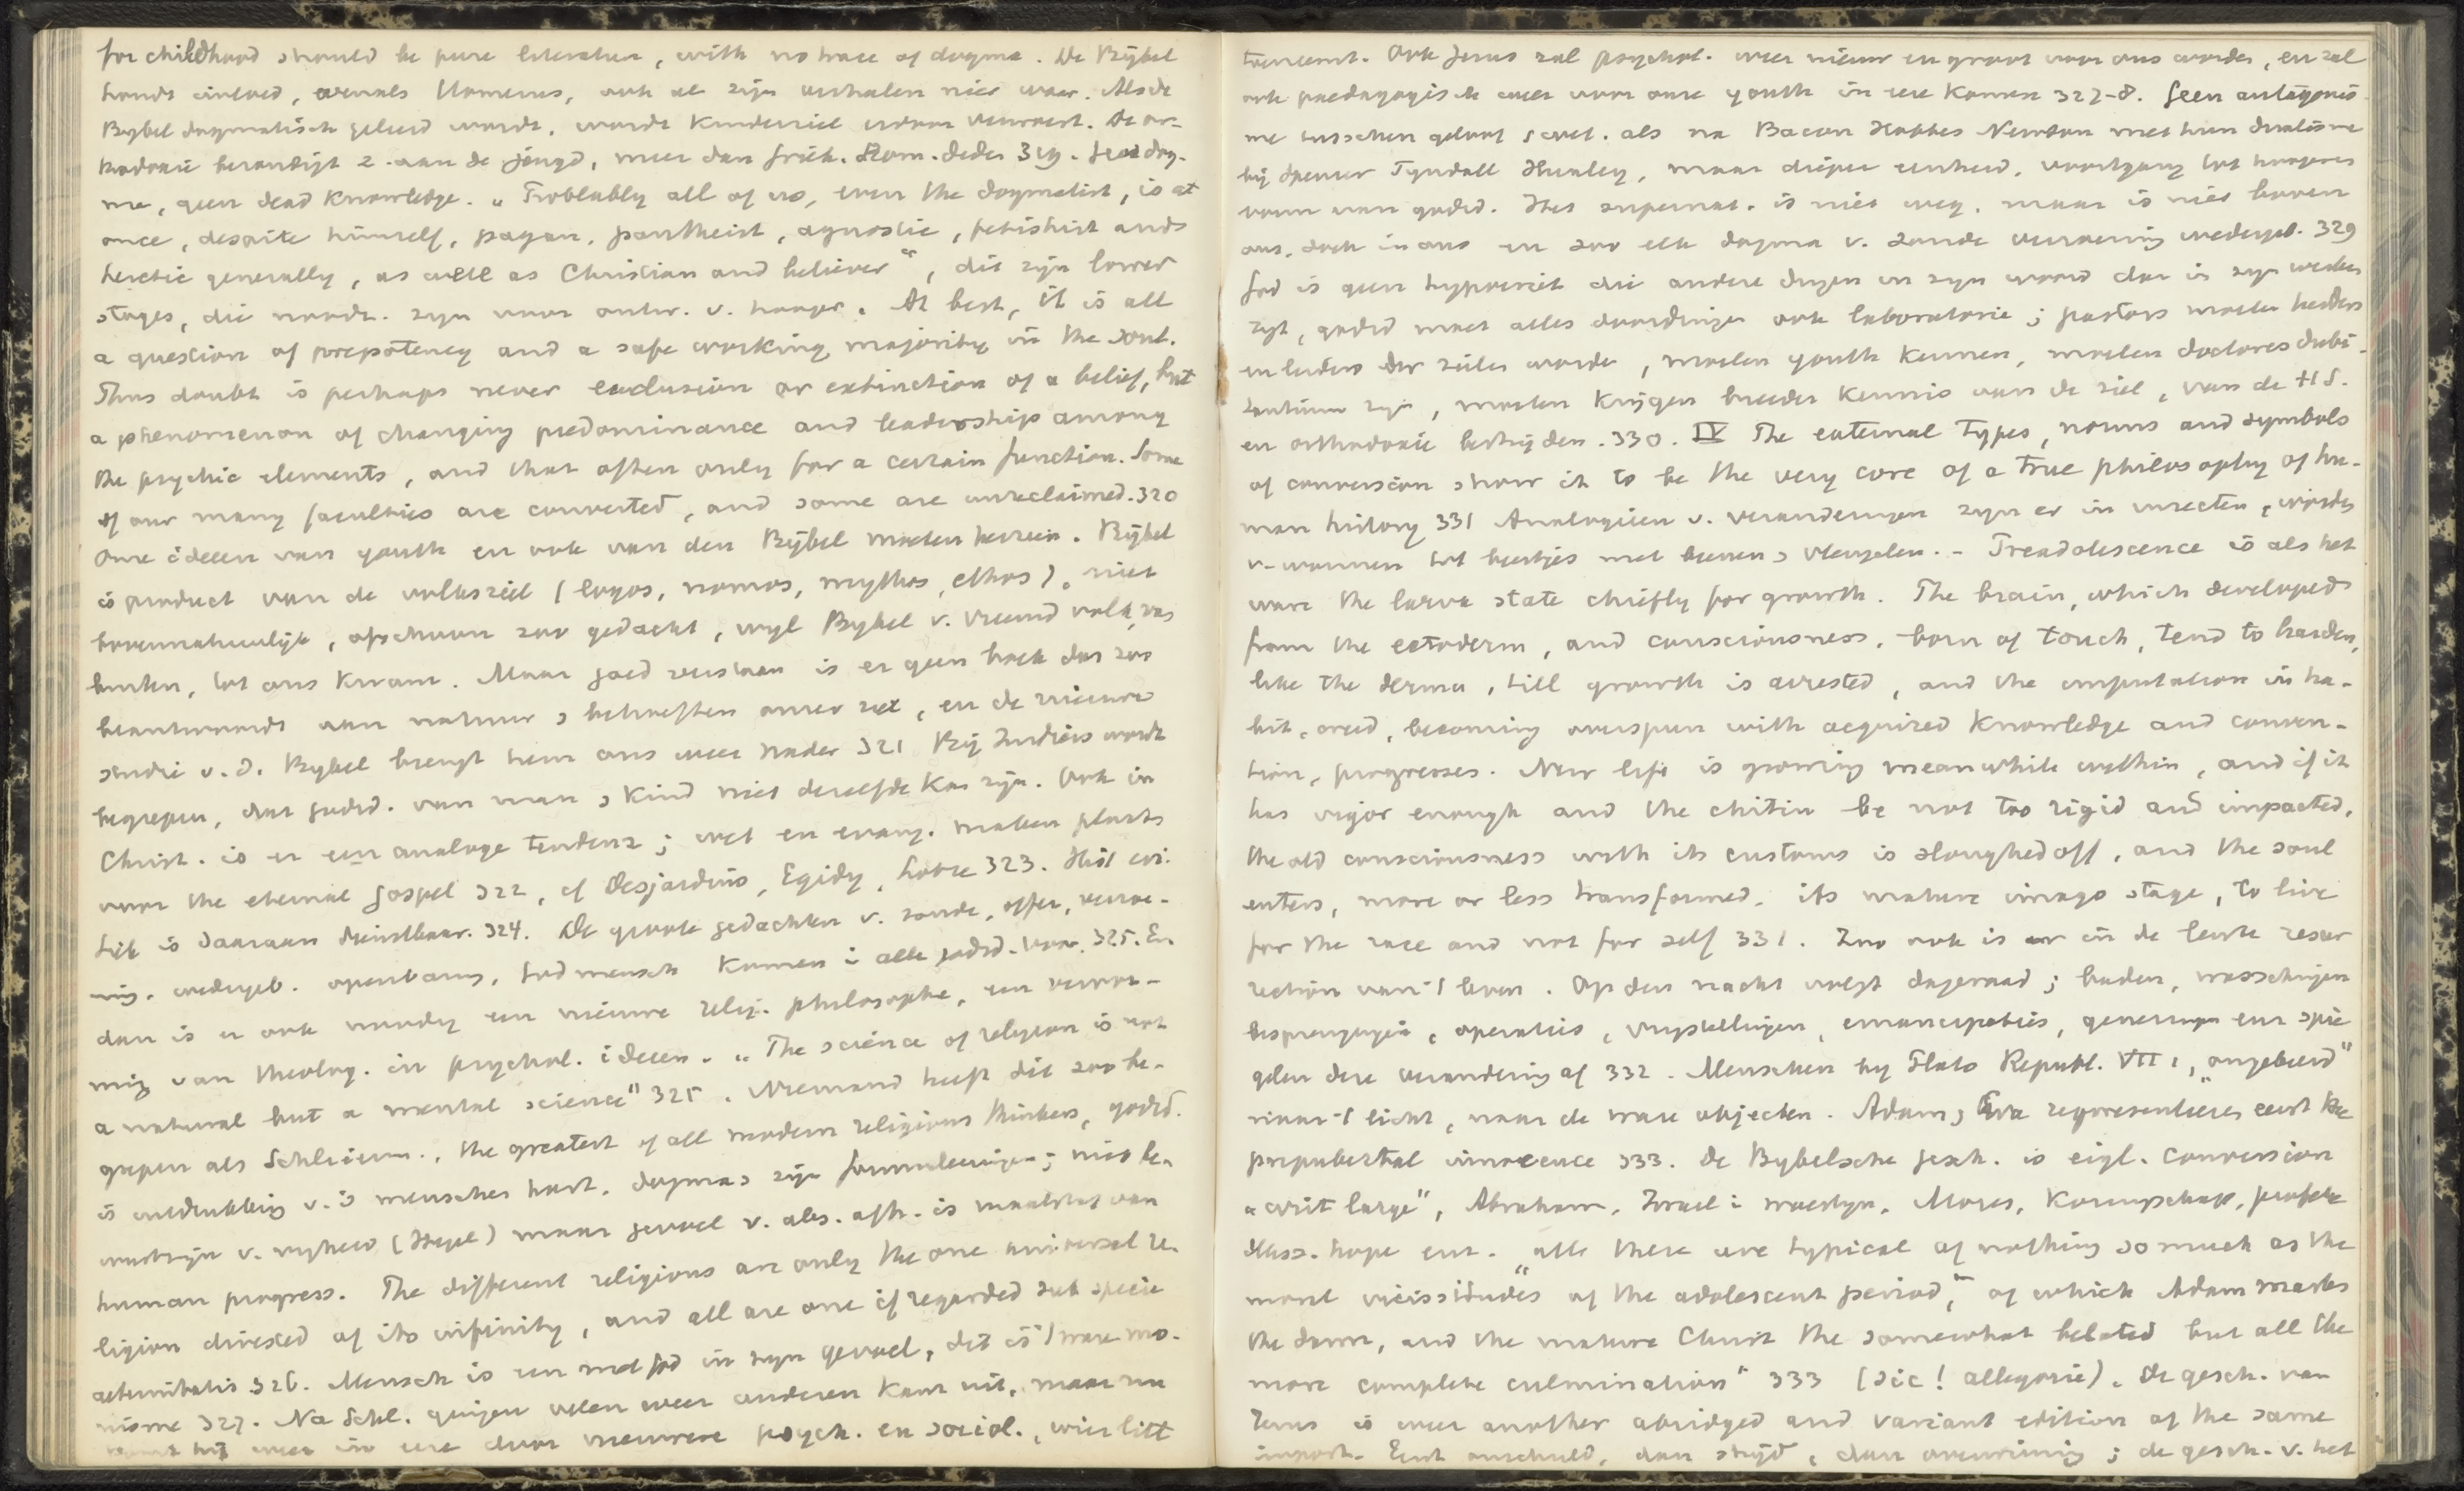 for childhood should be pure literature, with no trace of dogma. De Bijbel
houdt invloed, evenals Homerus, ook al zijn verhalen niet waar. Als de
Bybel dogmatisch geleerd wordt, wordt kinderziel erdoor verwoest. De or-
thodoxie bezondigt z. aan de jeugd, meer dan friv. Rom. Geen dog-
ma, geen dead knowledge. „Probably all of us, even the dogmatist, is at
once, despite himself, pagan, pantheist, agnostic, fetishist and
heretic generally, as well as Christian and believer", dit zijn lower
stages, die noodz. zyn voor ontw. v. hooger. At best, it is all
a question of prepotency and a safe working majority in the soul.
Thus doubt is perhaps never exclusion or extinction of a belief, but
a phenomenon of changing predominance and leadership among
the psychic elements, and that often only for a certain function. Some
of our many faculties are converted, and some are unreclaimed. 320
Onze ideeen van youth en ook van den Bijbel moeten herzien. Bijbel
is product van de volksziel (logos, nomos, mythos, ethos), niet
bovennatuurlijk, ofschoon zoo gedacht, wyl Bybel v. vreemd volk, van
buiten, tot ons kwam. Maar goed verstaan is er geen boek dat zoo
beantwoordt aan natuur & behoeften onzer ziel, en de nieuwe
studie v. d. Bybel brengt hem ons weer nader 321 Bij Indiërs wordt
begrepen, dat godsd. van man & kind niet dezelfde kan zijn. Ook in
Christ. is er een analoge tendenz; wet en evang. maken plaats
voor the eternal gospel 322, cf Desjardins, Egidy, 323. Hist cri-
tiek is daaraan dienstbaar. 324. De groote gedachten v. zonde, offer, verzoe-
ning, wedergeb. openbaring, Godmensch komen in alle godsd. voor. 325. En
dan is er ook noodig een nieuwe relig. philosophie, een vervor-
ming van theolog. in psychol. ideeen. „The science of religion is not
a natural but a mental science" 325. Niemand heeft dit zoo be-
grepen als Schleierm., the greatest of all modern religious thinkers, godsd.
is uitdrukking v. 's menschen hart, dogmas zijn formuleeringen; niet be-
wustzijn v. vryheid (Hegel) maar gevoel v. abs. afh. is maatstaf van
human progress. The different religions are only the one universal re-
ligion divested of its infinity, and all are one if regarded sub specie
aeternitatis 326. Mensch is een met God in zyn gevoel, dit is 't ware mo-
nisme 327. Na Schl. gingen velen weer anderen kant uit, maar nu
komt hij weer in eer door nieuwere psych. en sociol., wier licht
toeneemt. Ook Jezus zal psychol. weer nieuw en groot voor ons worden, en zal
ook paedagogisch weer voor onze youth in eere komen 327-8. Geen antagonis-
me tusschen geloof & wet. als na Bacon Hobbes Newton met hun dualisme
bij Spencer Tyndall Huxley, maar dieper eenheid, voortgang tot hoogeren
vorm van godsd. Het supernat. is niet weg, maar is niet boven
ons, doch in ons en zoo elk dogma v. zonde verzoening wedergeb. 329
God is geen hypocriet die andere dingen in zyn woord dan in zyn werken
zegt, godsd moet alles doordringen ook laboratorie; pastors moeten herders
en leiders der zielen worden, moeten youth kennen, moeten doctores dubi-
tantium zyn, moeten krijgen breeder kennis van de ziel, van de H S.
en orthodoxie bestrijden. 330. IV The external types, norms and symbols
of conversion show it to be the very core of a true philosophy of hu-
man history 331 Analogieen v. veranderingen zyn er in insecten, worden
v. wormen tot beestjes met beenen & vleugelen. - Preadolescence is als het
ware the larva state chiefly for growth. The brain, which developed
from the ectoderm, and consciousness, born of touch, tend to harden,
like the derma, till growth is arrested, and the imputation in ha-
bit, creed, becoming overspun with acquired knowledge and conven-
tion, progresses. New life is growing meanwhile within, and if it
has vigor enough and the chitin be not too rigid and impacted,
the old consciousness with its customs is sloughed off, and the soul
enters, more or less transformed, its mature imago stage, to live
for the race and not for self 331. Zoo ook is er in de lente resur
rection van 't leven. Op den nacht volgt dageraad; baden, wasschingen
besprengingen, operaties, vrystellingen, emancipaties, genezingen enz spie
gelen deze verandering af 332. Menschen by Plato Republ. VII 1, „omgekeerd"
naar 't licht, naar de ware objecten. Adam & Eva representeeren eerst the
prepubertal innocence 333. De Bybelsche gesch. is eigl. conversion
„writ large", Abraham, Israel in woestyn, Mozes, Koningschap, profetie
Mess. hope enz. „all these are typical of nothing so much as the
moral vicissitudes of the adolescent period," „of which Adam marks
the dawn, and the mature Christ the somewhat belated but all the
more complete culmination" 333 (sic! allegorie). De gesch. van
Jezus is weer another abridged and variant edition of the same
import. Eerst onschuld, dan strijd, dan overwinning; de gesch. v. het